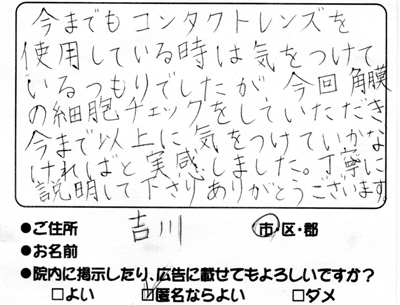 今までもコンタクトレンズを
使用している時は気をつけて
いるつもりでしたが、今回角膜
の細胞チェックをしていただき
今まで以上に気をつけていかな
ければと実感しました。丁寧に
説明して下さりありがとうございます
●ご住所 吉川 市・区・郡
●お名前
●院内に掲示したり、広告に載せてもよろしいですか?
□よい ☑匿名ならよい □ダメ